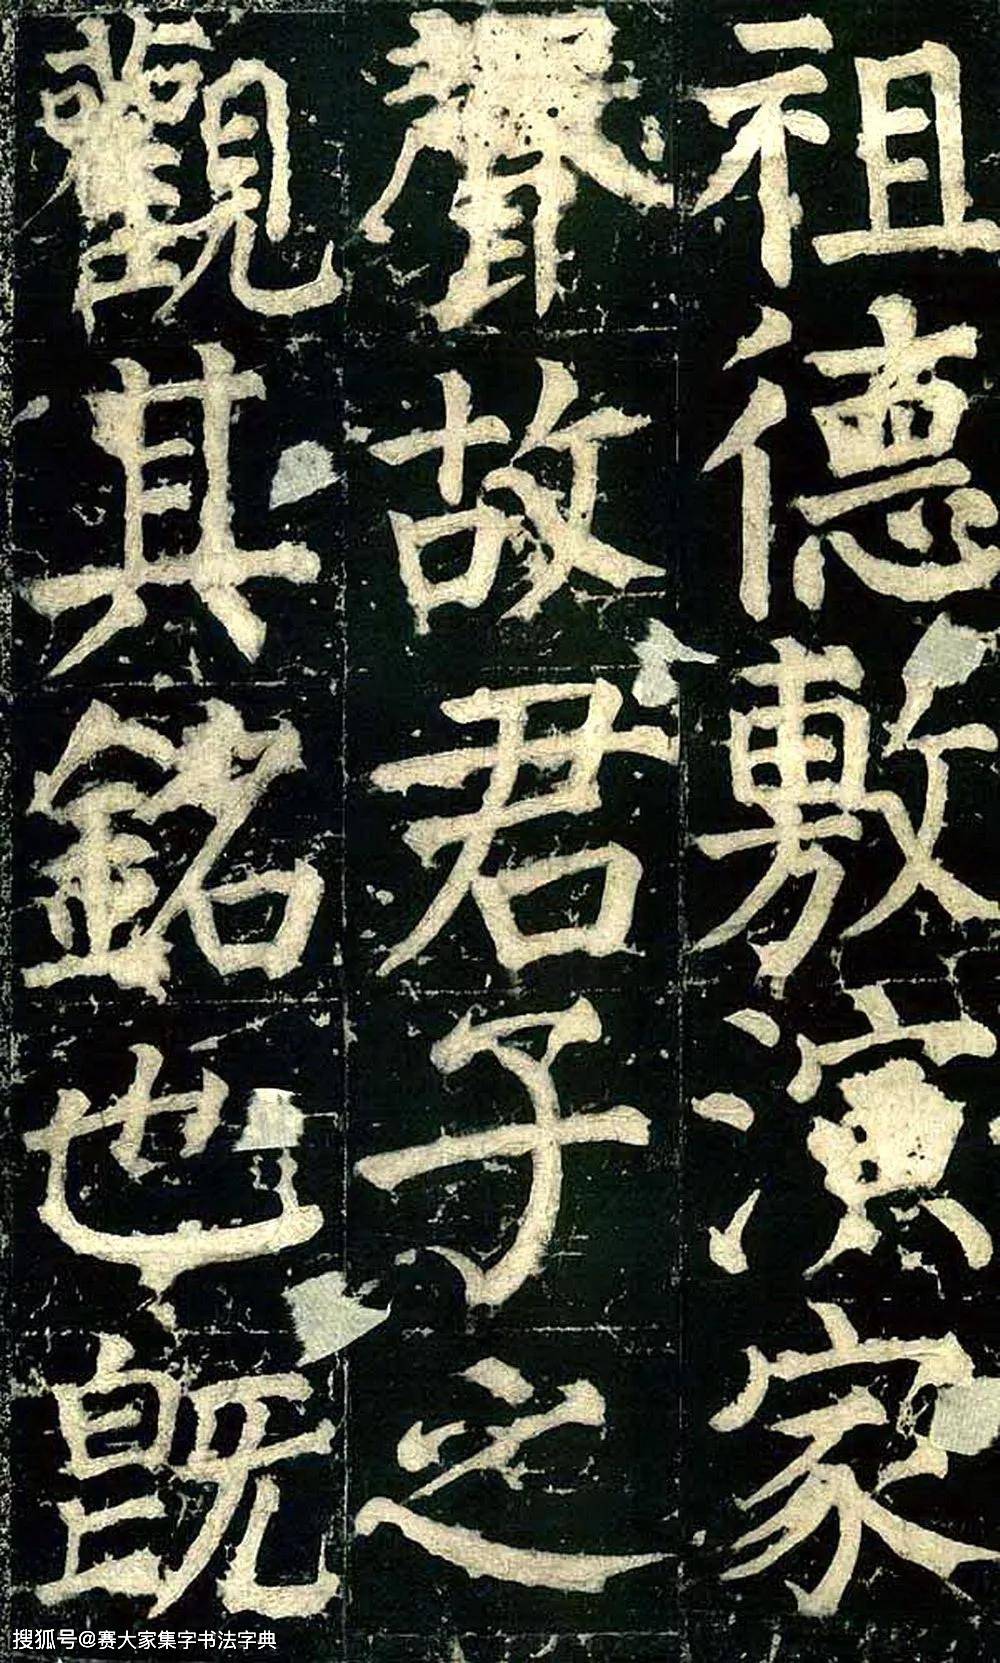 祖德敷演家
聲故君子之
觀其銘也既
搜狐号@赛大家集字书法字典